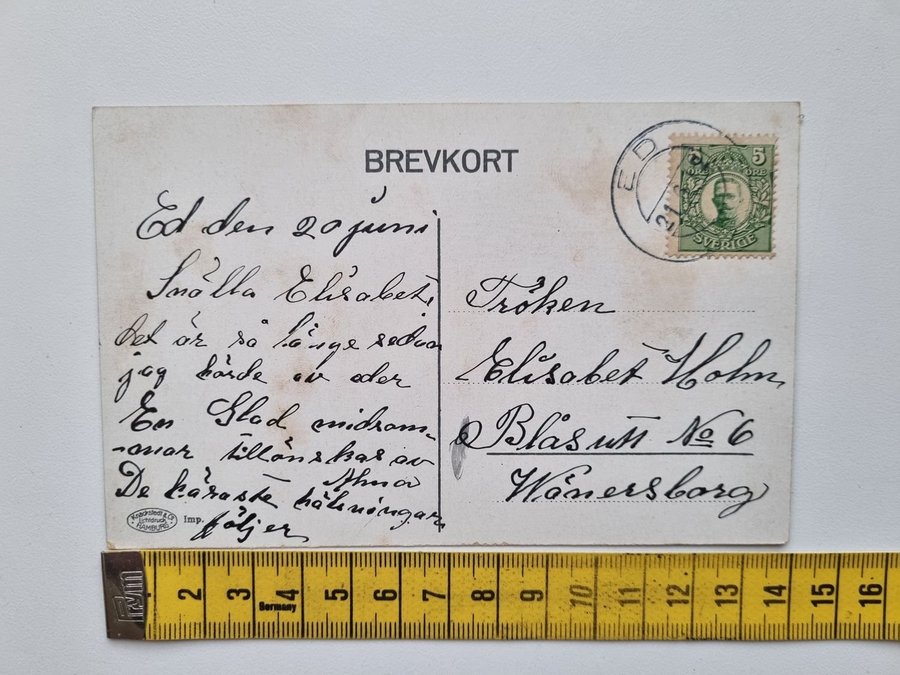 BREVKORT
ED
21
5
ÖRE ÖRE
SVERIGE
Ed den 20 juni
Snälla Elisabet,
det är så länge sedan
jag hörde av eder
En Glad midsom-
-mar tillönskas av
Alma
De käraste hälsningar
följer
Fröken
Elisabet Holm,
Blåsutt No 6
Wänersborg
Knackstedt & Co
Lichtdruck
HAMBURG
Imp.
1 2 3 4 5 6 7 8 9 10 11 12 13 14 15 16
Germany